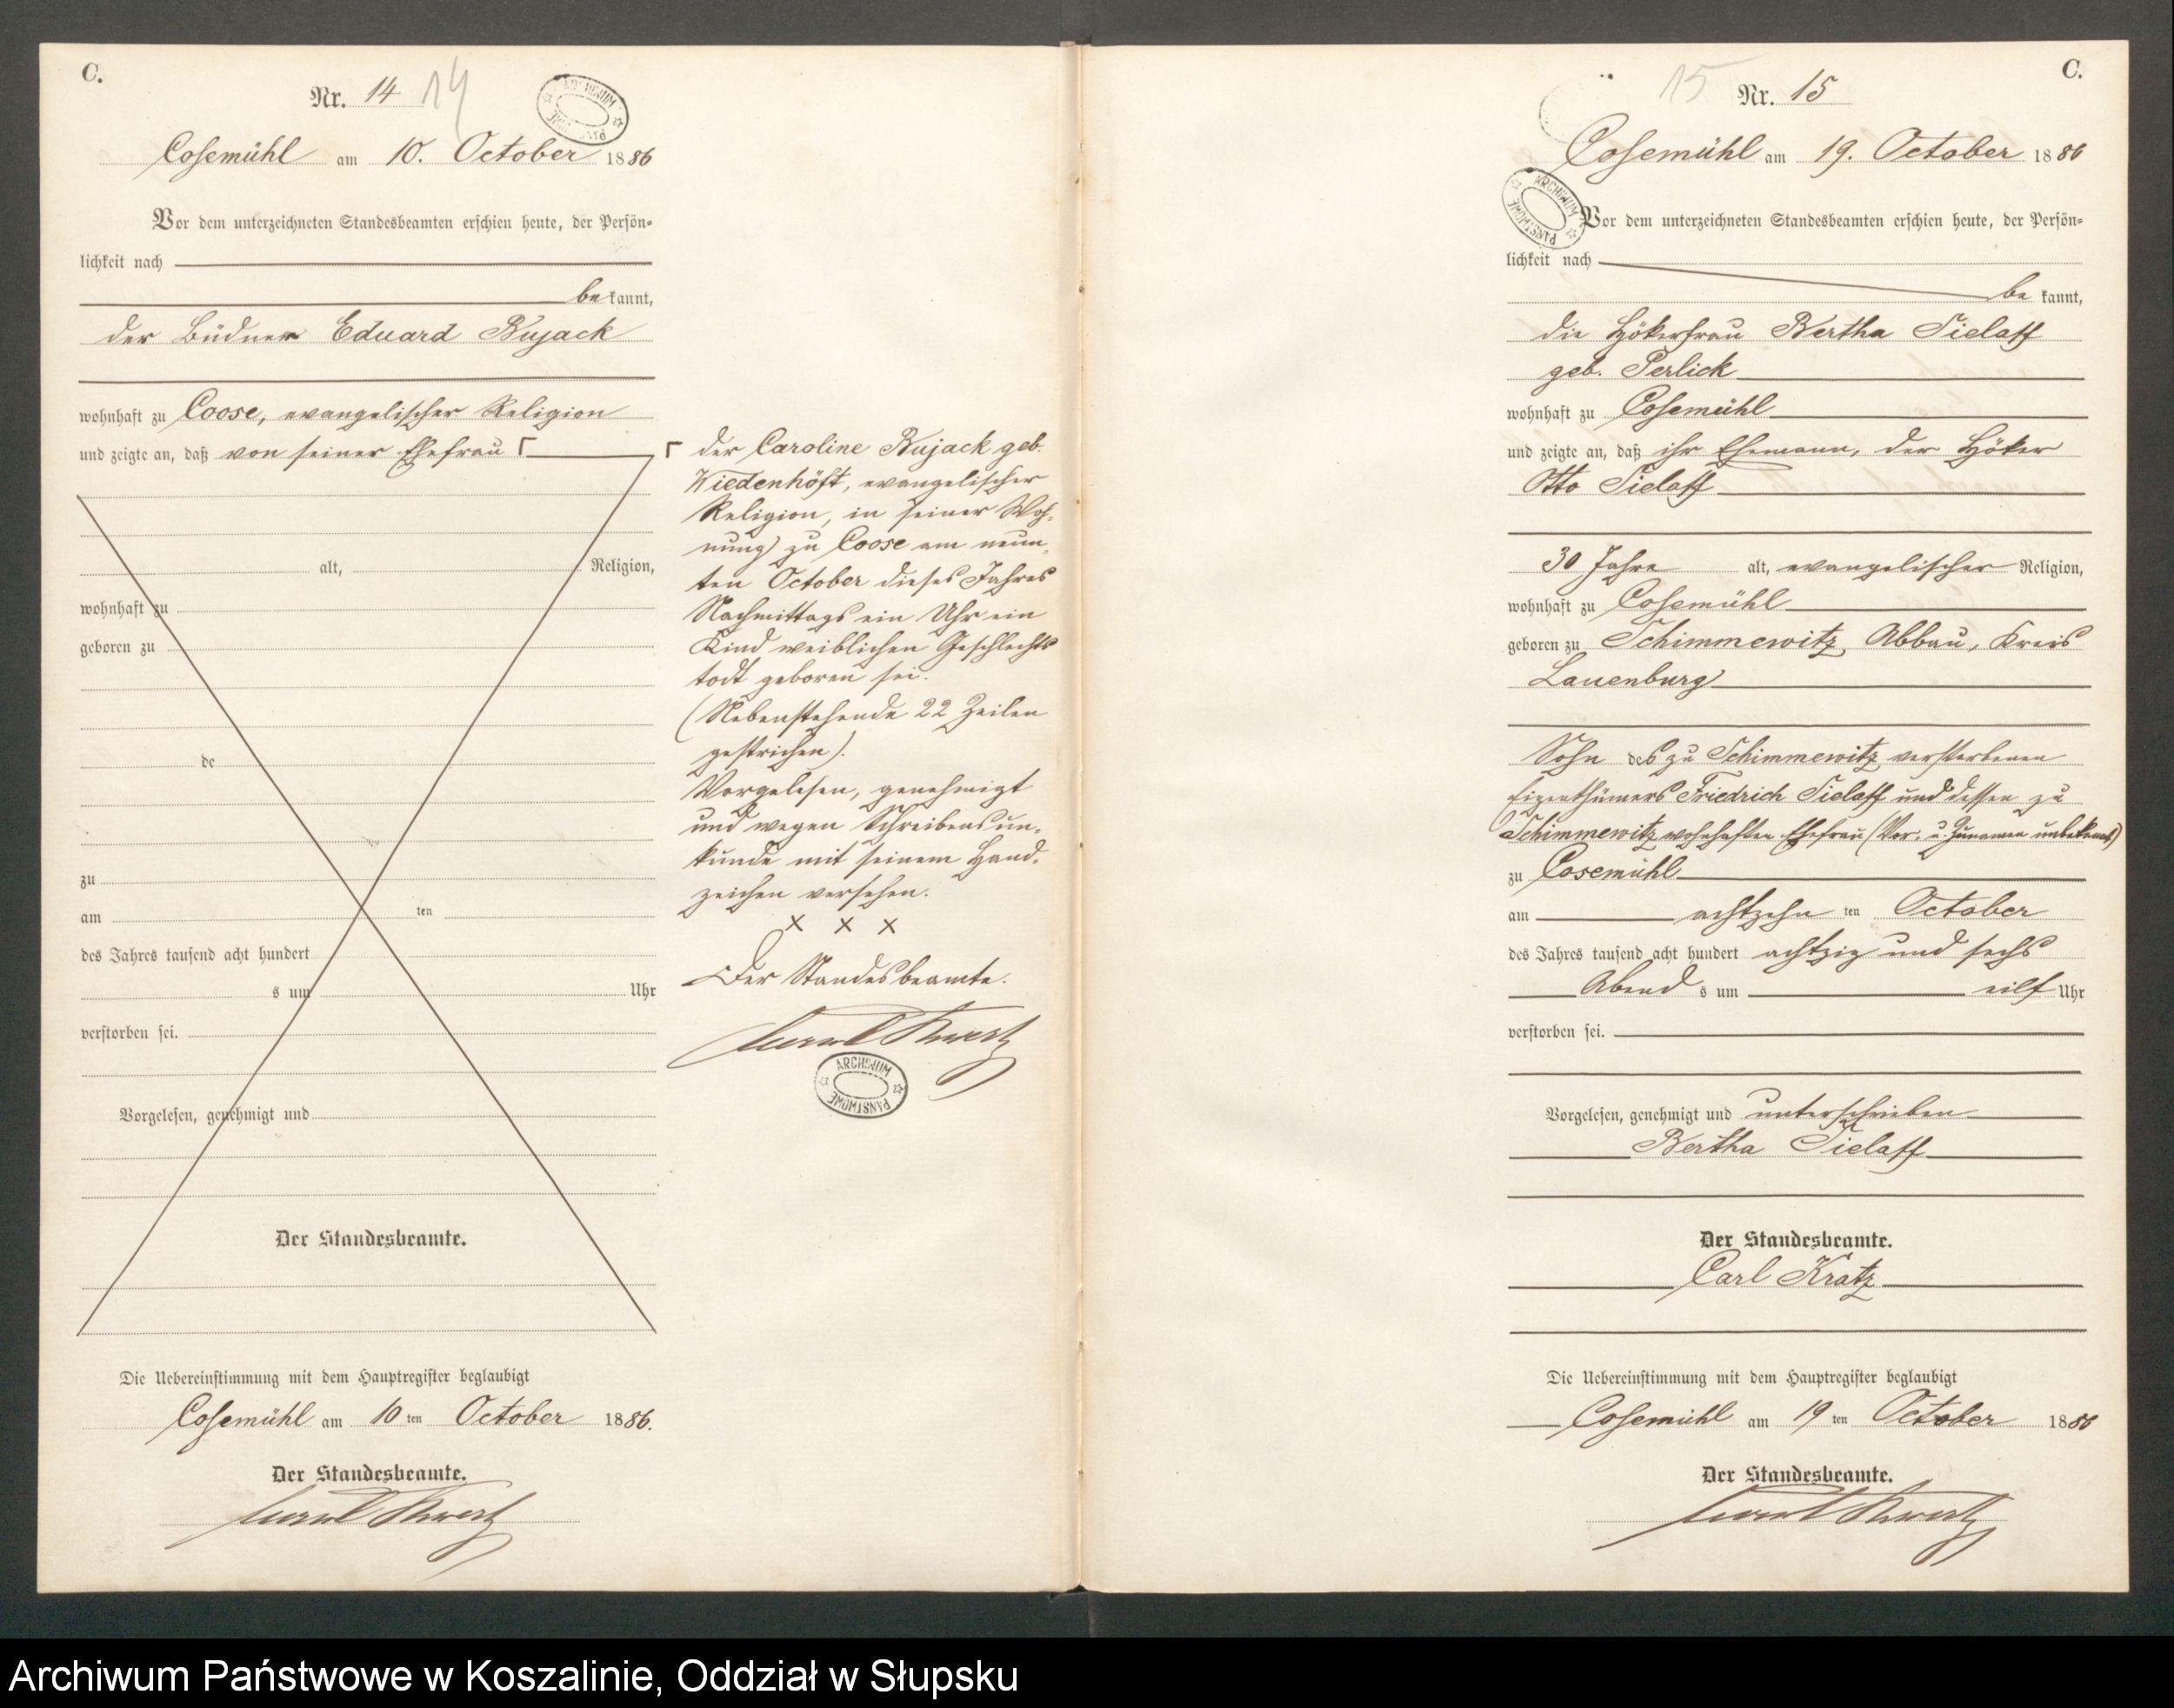 C.
Nr. 14 14
ARCHIWUM PAŃSTWOWE
Cosemühl am 10. October 1886
Vor dem unterzeichneten Standesbeamten erschien heute, der Persön-
lichkeit nach
bekannt,
der Büdner Eduard Bujack
wohnhaft zu Coose, evangelischer Religion
und zeigte an, daß von seiner Ehefrau
alt, Religion,
wohnhaft zu
geboren zu
de
zu
am ten
des Jahres tausend acht hundert
s um Uhr
verstorben sei.
Vorgelesen, genehmigt und
Der Standesbeamte.
Die Uebereinstimmung mit dem Hauptregister beglaubigt
Cosemühl am 10 ten October 1886.
Der Standesbeamte.
Carl Kratz
der Caroline Bujack geb.
Wiedenhöft, evangelischer
Religion, in seiner Woh-
nung zu Coose am neun-
ten October dieses Jahres
Nachmittags ein Uhr ein
Kind weiblichen Geschlechts
todt geboren sei.
(Nebenstehende 22 Zeilen
gestrichen).
Vorgelesen, genehmigt
und wegen Schreibensun-
kunde mit seinem Hand-
zeichen versehen.
x x x
Der Standesbeamte.
Carl Kratz
ARCHIWUM PAŃSTWOWE
C.
15 Nr. 15
Cosemühl am 19. October 1886
ARCHIWUM PAŃSTWOWE
Vor dem unterzeichneten Standesbeamten erschien heute, der Persön-
lichkeit nach
be kannt,
die Hökerfrau Bertha Sielaff
geb. Perlick
wohnhaft zu Cosemühl
und zeigte an, daß ihr Ehemann, der Höker
Otto Sielaff
30 Jahre alt, evangelischer Religion,
wohnhaft zu Cosemühl
geboren zu Schimmewitz, Abbau, Kreis
Lauenburg
Sohn des zu Schimmewitz verstorbenen
Eigenthümers Friedrich Sielaff und dessen zu
Schimmewitz wohnhaften Ehefrau (Vor- u. Zunamen unbekannt)
zu Cosemühl
am achtzehn ten October
des Jahres tausend acht hundert achtzig und sechs
Abend s um eilf Uhr
verstorben sei.
Vorgelesen, genehmigt und unterschrieben
Bertha Sielaff
Der Standesbeamte.
Carl Kratz
Die Uebereinstimmung mit dem Hauptregister beglaubigt
Cosemühl am 19 ten October 1886
Der Standesbeamte.
Carl Kratz
Archiwum Państwowe w Koszalinie, Oddział w Słupsku